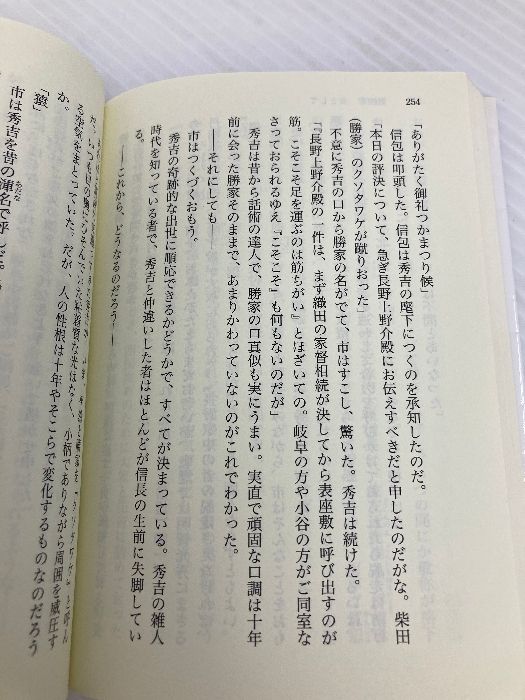 254
「ありがたく御礼つかまつり候」
信包は叩頭した。信包は秀吉の麾下につくのを承知したのだ。
「本日の評決について、急ぎ長野上野介殿にお伝えすべきだと申したのだがな。柴田
(勝家)のクソタワケが蹴りおった」
不意に秀吉の口から勝家の名がでて、市はすこし、驚いた。秀吉は続けた。
「『長野上野介殿の一件は、まず織田の家督相続が決してから表座敷に呼び出すのが
筋。こそこそ足を運ぶのは筋ちがい』とほざいての。岐阜の方や小谷の方がご同室な
さっておられるゆえ『こそこそ』も何もないのだが」
秀吉は昔から話術の達人で、勝家の口真似も実にうまい。実直で頑固な口調は十年
前に会った勝家そのままで、あまりかわっていないのがこれでわかった。
――それにしても――
市はつくづくおもう。
――これから、どうなるのだろう――
秀吉の奇跡的な出世に順応できるかどうかで、すべてが決まっている。秀吉の雑人
時代を知っている者で、秀吉と仲違いした者はほとんどが信長の生前に失脚してい
る。
る空気をまとっていた。だが、人の性根は十年やそこらで変化するものなのだろう
か。
「猿」
市は秀吉を昔の渾名で呼んだ。